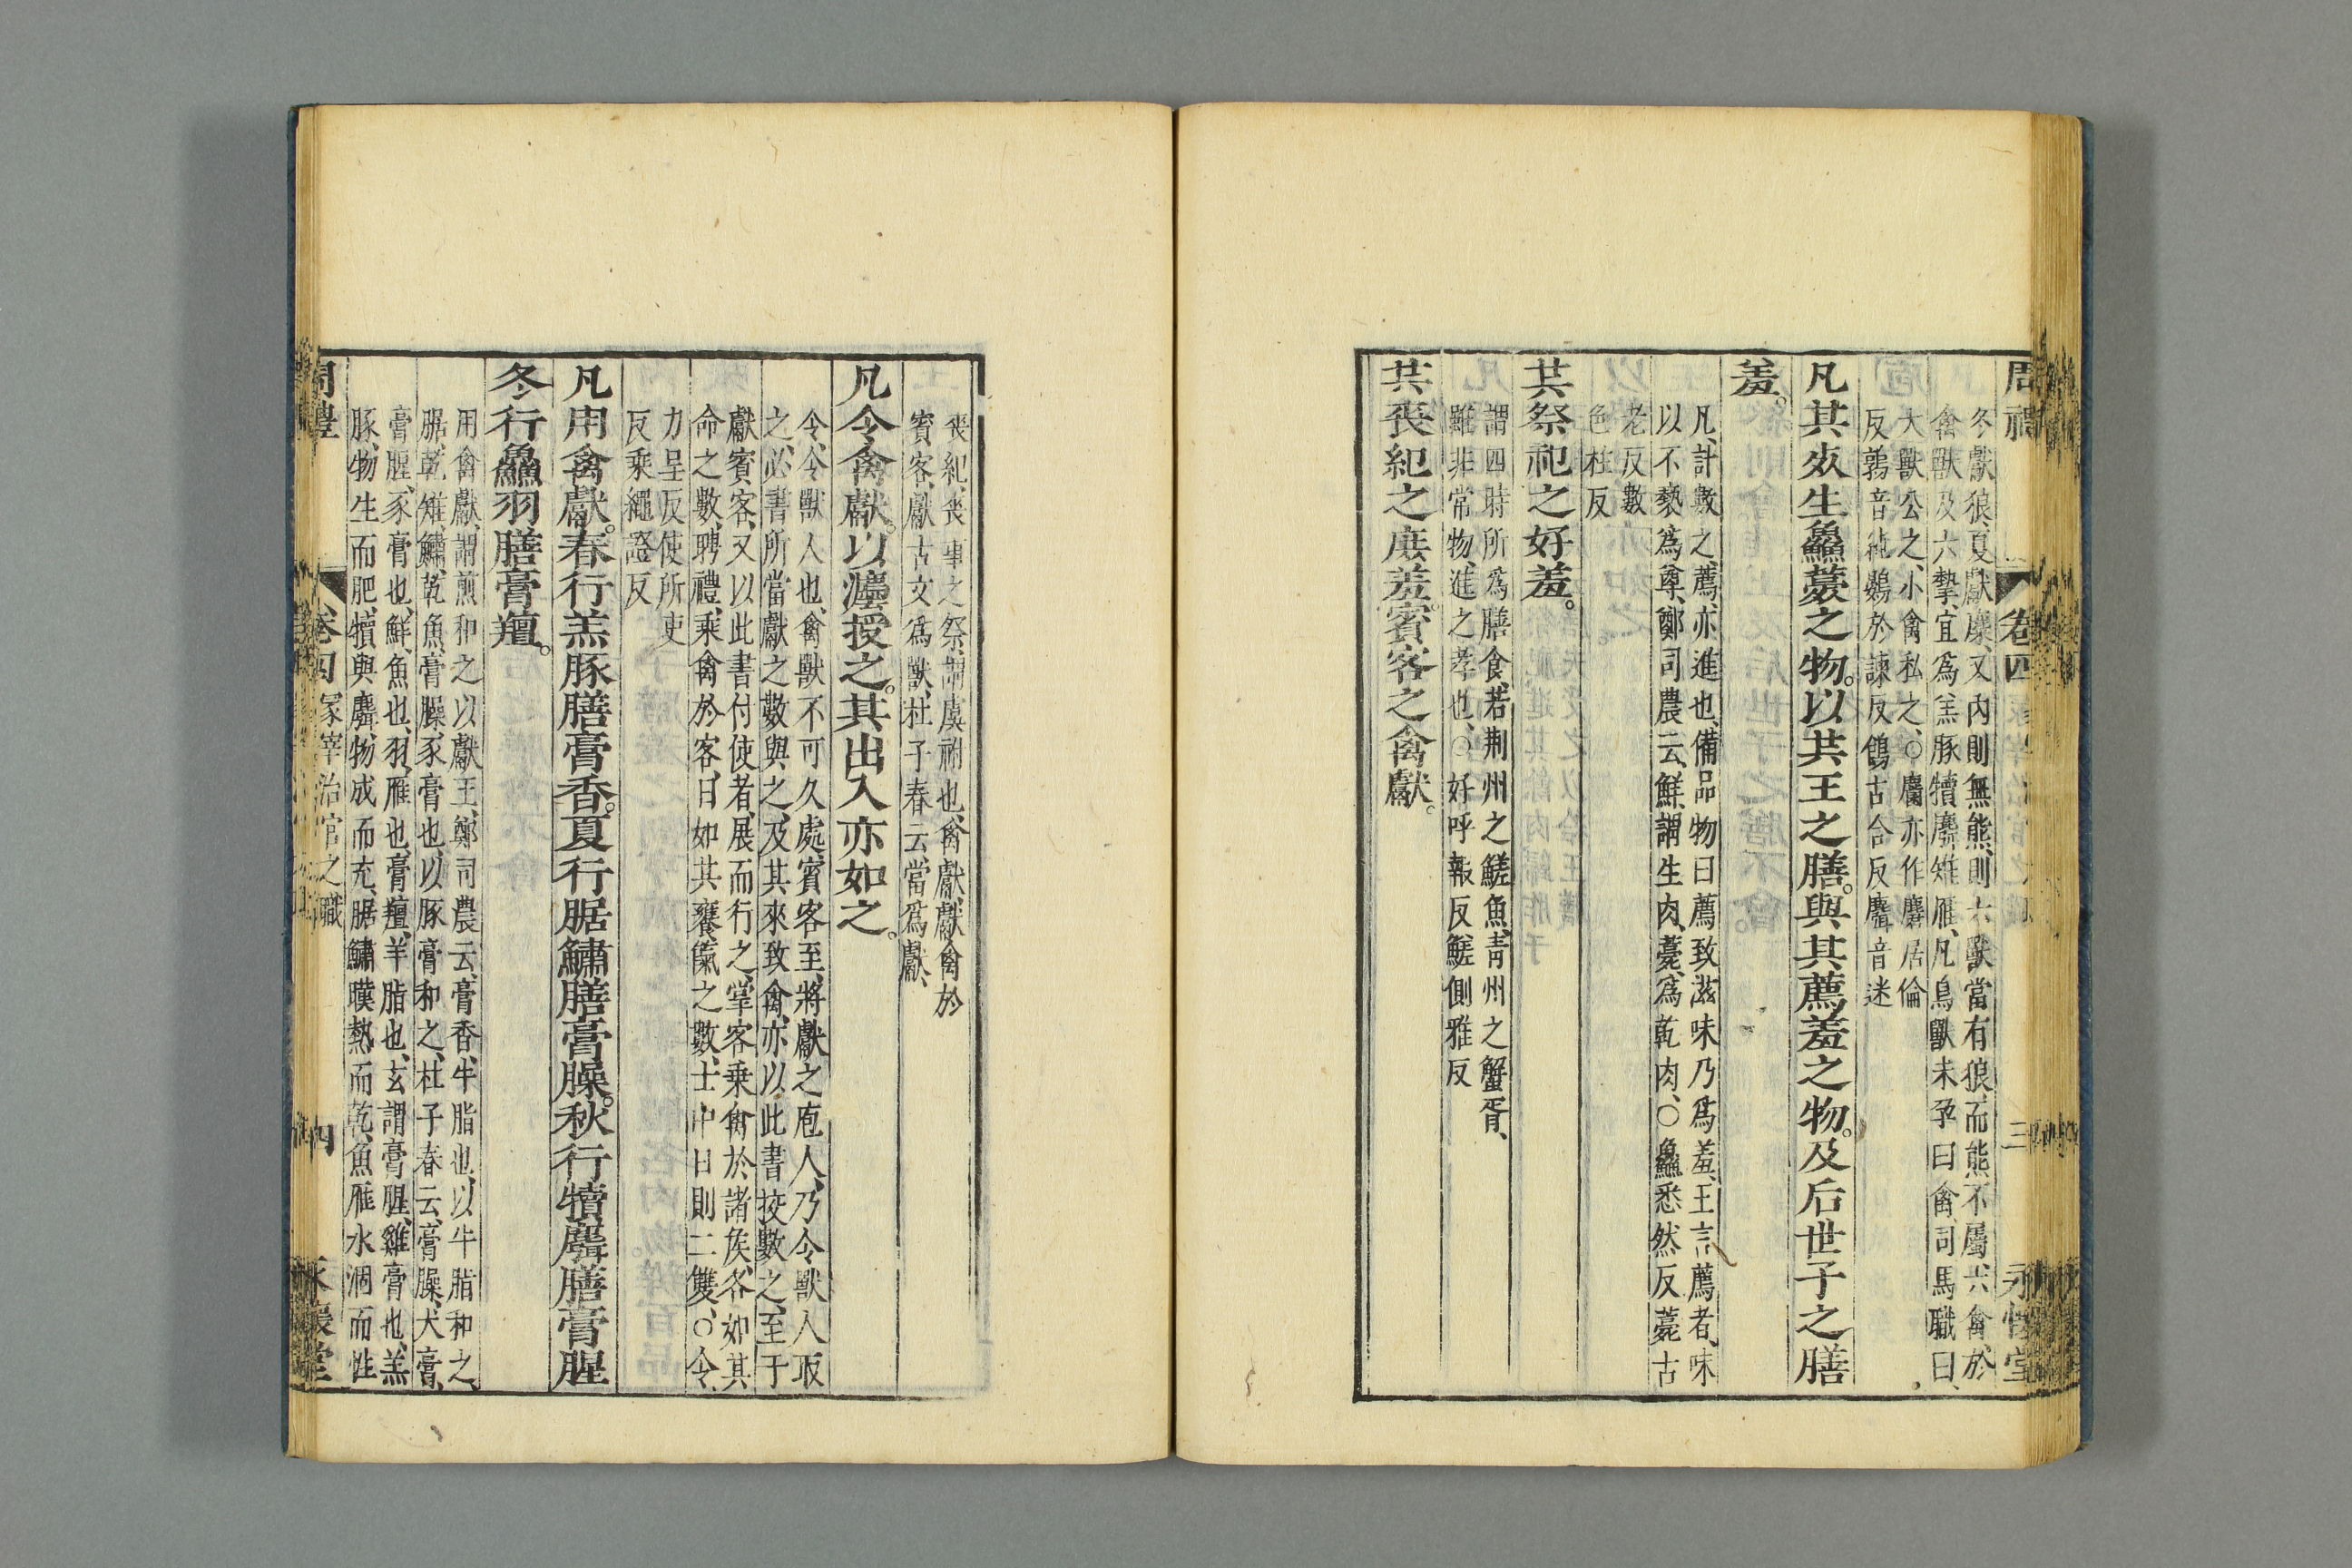 周禮 卷四 三 永懷堂
冬獻狼夏獻麋、又内則無熊、則六獸當有狼、而熊不屬、六禽、於
禽獸及六摯、宜爲羔豚犢麛雉雁、凡鳥獸未孕曰禽、司馬職曰、
大獸公之、小禽私之、○麕亦作麏居倫
反鶉音純鷃於諫反鴿古合反麛音迷
凡其死生鱻薧之物。以共王之膳。與其薦羞之物。及后世子之膳
羞。
凡、計數之、薦、亦進也、備品物曰薦、致滋味乃爲羞、王言薦者、味
以不褻爲尊、鄭司農云、鮮、謂生肉、薧、爲乾肉、○鱻悉然反薧古
老反數
色柱反
共祭祀之好羞。
謂四時所爲膳食、若荆州之䱹魚、靑州之蟹胥、
雖非常物、進之孝也、○好呼報反䱹側雅反
共喪紀之庶羞。賓客之禽獻。
喪紀、喪事之祭、謂虞祔也、禽獻、獻禽於
賓客、獻古文爲獸、杜子春云、當爲獻、
凡令禽獻。以灋授之。其出入亦如之。
令、令獸人也、禽獸不可久處、賓客至、將獻之庖人、乃令獸人取
之、必書所當獻之數與之、及其來致禽、亦以此書挍數之、至于
獻賓客、又以此書付使者、展而行之、掌客乘禽於諸侯、各如其
命之數、聘禮、乘禽於客、日如其饔餼之數、士中日則二雙、○令
力呈反使所吏
反乘繩證反
凡用禽獻。春行羔豚膳膏香。夏行腒鱐膳膏臊。秋行犢麛膳膏腥
冬行鱻羽膳膏羶。
用禽獻、謂煎和之以獻王、鄭司農云、膏香、牛脂也、以牛脂和之、
腒、乾雉、鱐、乾魚、膏臊、豕膏也、以豚膏和之、杜子春云、膏臊、犬膏、
膏腥、豕膏也、鮮、魚也、羽、雁也、膏羶、羊脂也、玄謂膏腥、雞膏也、羔
豚、物生而肥、犢與麛、物成而充、腒鱐暵熱而乾、魚雁水涸而性
周禮 卷四 冢宰治官之職 四 永懷堂